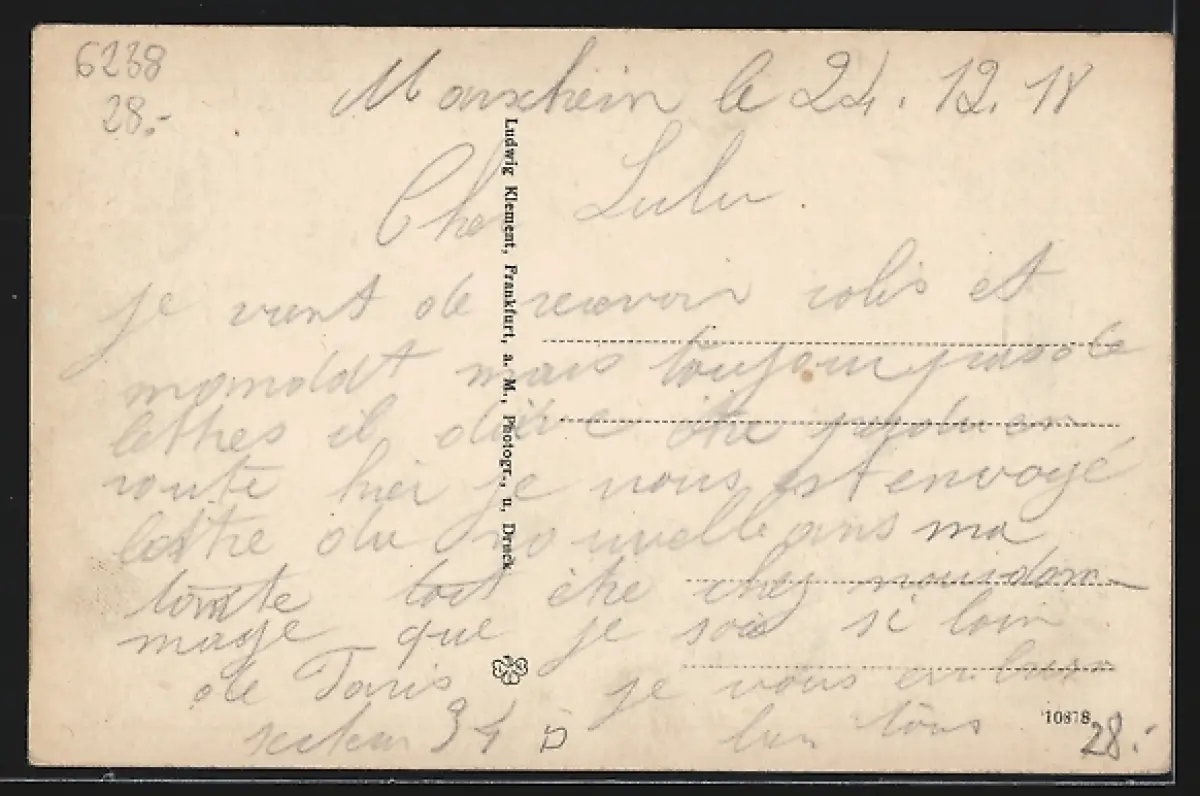 6238
28.-
Marxheim le 24. 12. 18
Cher Lulu
je vient de recevoir colis et
mandat mais toujour pas de
lettres il doive être perdu en
route hier je vous est envoyé
lettre du nouvelle ans ma
tante doit être chez nous dom-
mage que je sois si loin
de Paris je vous embrasse
bien tous
secteur 34 D
Ludwig Klement, Frankfurt, a. M., Photogr., u, Druck
10878
28.-